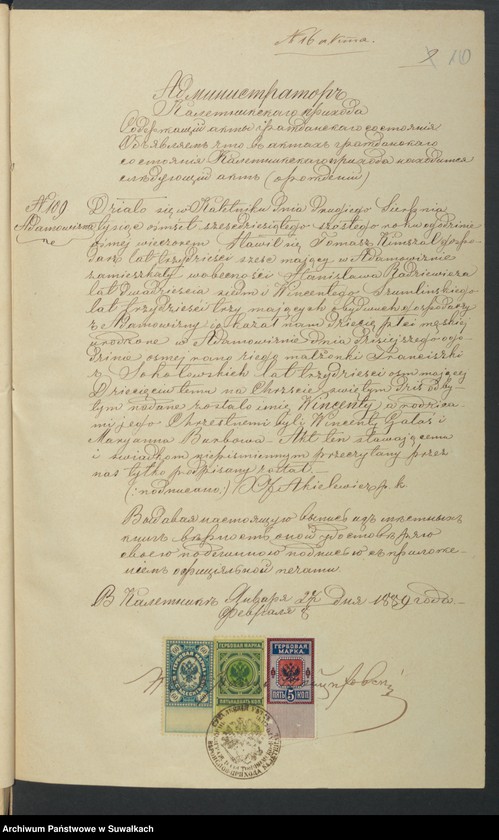 № 16 акта.
110
Администраторъ
Калетникскаго прихода
Содержащий акты гражданскаго состоянія
Объявляемъ что въ актахъ гражданскаго
состоянія Калетникскаго прихода находится
слѣдующій актъ (о рожденіи)
№ 109
Adamowizna
Działo się w Kaletniku Dnia Drugiego Sierpnia
tysiąc ośmset sześćdziesiątego szóstego roku o godzinie
ósmej wieczorem. Stawił się Tomasz gospo-
darz lat trzydzieści sześć mający w Adamowiznie
zamieszkały w obecności Stanisława Radziewicza
lat dwadzieścia siedm i Wincentego Szumlinskiego
lat trzydzieści trzy mających obydwóch gospodarzy
z Adamowizny i okazał nam dziecię płci męskiej
urodzone w Adamowiznie dnia dzisiejszego o go-
dzinie ósmej rano z jego małżonki Franciszki
z Sokołowskich lat trzydzieści ośm mającej
Dziecięciu temu na Chrzcie świętym dziś odby-
tym nadane zostało imię Wincenty, a rodzica-
mi jego Chrzestnemi byli Wincenty Galas i
Maryanna Burbowa. Akt ten stawającemu
i świadkom niepiśmiennym przeczytany przez
nas tylko podpisany został.
(:подписано:) X. Akielewicz p. k.
Выдавая настоящую выпись изъ мѣстныхъ
книгъ вѣрность оной удостовѣряю
своею подлинною подписью съ приложе-
ніемъ оффиціальной печати.
В Калетникъ Января 27 дня 1889 года.
Февраля 8
ГЕРБОВАЯ МАРКА
ГЕРБОВАЯ МАРКА
ПЯТЬ 5 КОП
Archiwum Państwowe w Suwałkach